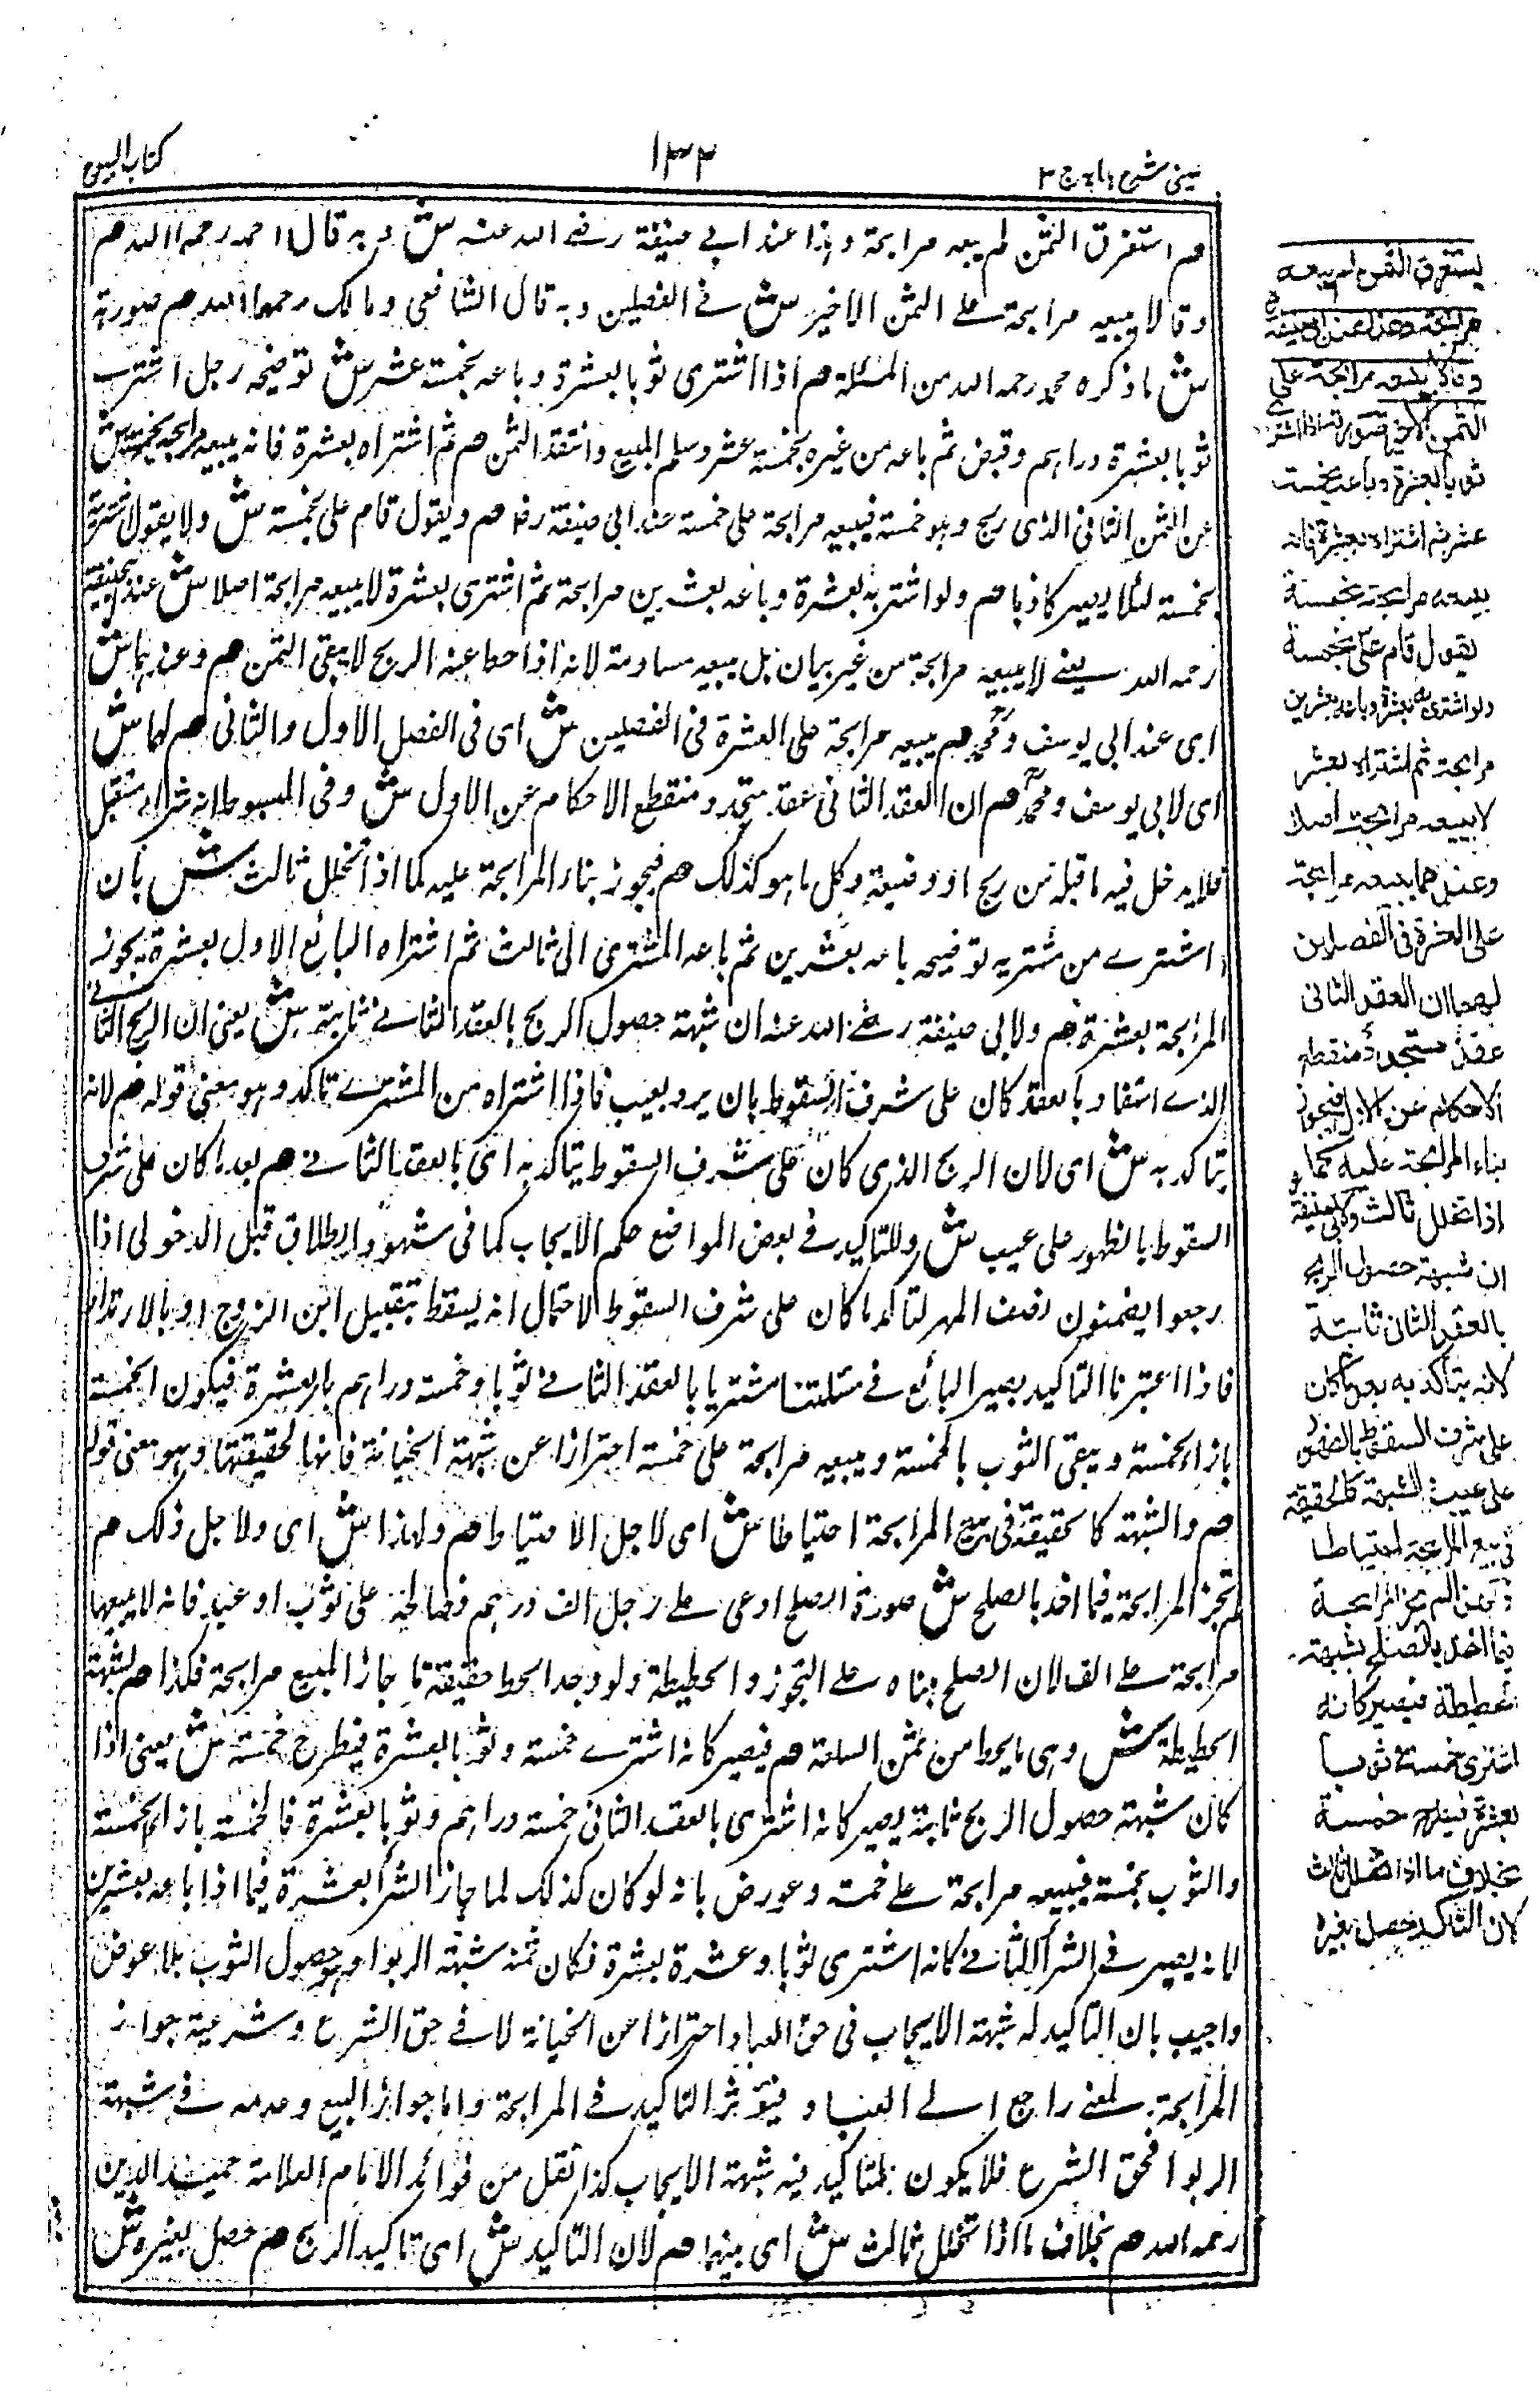 عینی شرح ہدایہ ج ٣
١٣٣
کتاب البیوع
هم استغرق الثمن لم یبعه مرابحة وہذا عند ابی حنیفة رضی الله عنه ش وبه قال احمد رحمه الله هم
وقالا یبیعه مرابحة علی الثمن الاخیر ش فی الفصلین وبه قال الشافعی ومالک رحمهما الله هم صورته
ش ما ذکره محمد رحمه الله من المسئلة هم اذا اشتری ثوبا بعشرة وباعه بخمسة عشر ش توضیحه رجل اشتری
ثوبا بعشرة دراہم وقبض ثم باعه من غیره بخمسة عشر وسلم المبیع وانتقد الثمن هم ثم اشتراه بعشرة فانه یبیعه مرابحة بخمسة ش
عن الثمن الثانی الذی ربح وہو خمسة فیبیعه مرابحة علی خمسة عند ابی حنیفة رضـ هم ویقول قام علی بخمسة ش ولا یقول اشتریته
بخمسة لئلا یصیر کاذبا هم ولو اشتریه بعشرة وباعه بعشرین مرابحة ثم اشتری بعشرة لا یبیعه مرابحة اصلا ش عند ابی حنیفة
رحمه الله یعنی لا یبیعه مرابحة من غیر بیان بل یبیعه مساومة لانه اذا حط عنه الربح لا یبقی الثمن هم وعندہما ش
ای عند ابی یوسف ومحمد هم یبیعه مرابحة علی العشرة فی الفصلین ش ای فی الفصل الاول والثانی هم لهما ش
ای لابی یوسف ومحمد هم ان العقد الثانی عقد متجدد منقطع الاحکام عن الاول ش وفی المبسوط انه شراء مستقبل
فلا یدخل فیه ما قبله من ربح او وضیعة وکل ما ہو کذلک هم فیجوز بناء المرابحة علیه کما اذا تخلل ثالث ش بان
اشتری من مشتریه توضیحه باعه بعشرین ثم باعه المشتری الی ثالث ثم اشتراه البائع الاول بعشرة یجوز
المرابحة بعشرة هم ولابی حنیفة رضی الله عنه ان شبهة حصول الربح بالعقد الثانی ثابتة ش یعنی ان الربح الثانی
الذی استفاد بالعقد کان علی شرف السقوط بان یرد بعیب فاذا اشتراه من المشتری تاکد وہو معنی قوله هم لانه
یتاکد به ش ای لان الربح الذی کان علی شرف السقوط یتاکد به ای بالعقد الثانی هم بعد ما کان علی شرف
السقوط بالظهور علی عیب ش وللتاکید فی بعض المواضع حکم الایجاب کما فی شهود الطلاق قبل الدخول اذا
رجعوا یضمنون نصف المهر لتاکد ما کان علی شرف السقوط لاحتمال انه یسقط بتقبیل ابن الزوج او بالارتداد
فاذا اعتبرنا التاکید یصیر البائع فی مسئلتنا مشتریا بالعقد الثانی ثوبا وخمسة دراہم بالعشرة فیکون الخمسة
بازاء الخمسة ویبقی الثوب بالخمسة ویبیعه مرابحة علی خمسة احترازا عن شبهة الخیانة فانها کحقیقتها وہو معنی قوله
هم والشبهة کالحقیقة فی بیع المرابحة احتیاطا ش ای لاجل الاحتیاط هم ولهذا ش ای ولاجل ذلک هم
لم تجز المرابحة فیما اخذ بالصلح ش صورة الصلح ادعی علی رجل الف درہم فصالحه علی ثوب او عبد فانه لا یبیعها
مرابحة علی الف لان الصلح بناه علی التجوز والحطیطة ولو وجد الحط حقیقة ما جاز المبیع مرابحة فکذا هم لشبهة
الحطیطة ش وہی ما یحط من ثمن السلعة هم فیصیر کانه اشتری خمسة وثوبا بعشرة فیطرح خمسة ش یعنی اذا
کان شبهة حصول الربح ثابتة یصیر کانه اشتری بالعقد الثانی خمسة دراہم وثوبا بعشرة فالخمسة بازاء الخمسة
والثوب بخمسة فیبیعه مرابحة علی خمسة وعورض بانه لو کان کذلک لما جاز الشراء بعشرة فیما اذا باعه بعشرین
لانه یصیر فی الشراء الثانی کانه اشتری ثوبا وعشرة بعشرة فکان ثمنه شبهة الربوا وہو حصول الثوب بلا عوض
واجیب بان التاکید له شبهة الایجاب فی حق العباد احترازا عن الخیانة لا فی حق الشرع وشرعیة جواز
المرابحة لمعنی راجع الی العباد فیؤثر التاکید فی المرابحة واما جواز البیع وعدمه فی شبهة
الربوا فحق الشرع فلا یکون للتاکید فیه شبهة الایجاب کذا نقل من فوائد الامام العلامة حمید الدین
رحمه الله هم بخلاف ما اذا تخلل ثالث ش ای بینهما هم لان التاکید ش ای تاکید الربح هم حصل بغیره ش
یستغرق الثمن لم یبعه
مرابحة وهذا عند ابی حنیفة
وقالا یبیعه مرابحة علی
الثمن الاخیر صورته اذا اشتری
ثوبا بعشرة وباعه بخمسة
عشر ثم اشتراه بعشرة فانه
یبیعه مرابحة بخمسة
یقول قام علی بخمسة
ولو اشتری به بعشرة وباعه بعشرین
مرابحة ثم اشتراه بعشر
لا یبیعه مرابحة اصلا
وعندهما یبیعه مرابحة
علی العشرة فی الفصلین
لهما ان العقد الثانی
عقد متجدد منقطع
الاحکام عن الاول فیجوز
بناء المرابحة علیه کما
اذا تخلل ثالث ولابی حنیفة
ان شبهة حصول الربح
بالعقد الثانی ثابتة
لانه یتاکد به بعد ما کان
علی شرف السقوط بالظهور
علی عیب الشبهة کالحقیقة
فی بیع المرابحة احتیاطا
ولهذا لم تجز المرابحة
فیما اخذ بالصلح لشبهة
الحطیطة فیصیر کانه
اشتری خمسة وثوبا
بعشرة فیطرح خمسة
بخلاف ما اذا تخلل ثالث
لان التاکید حصل بغیره